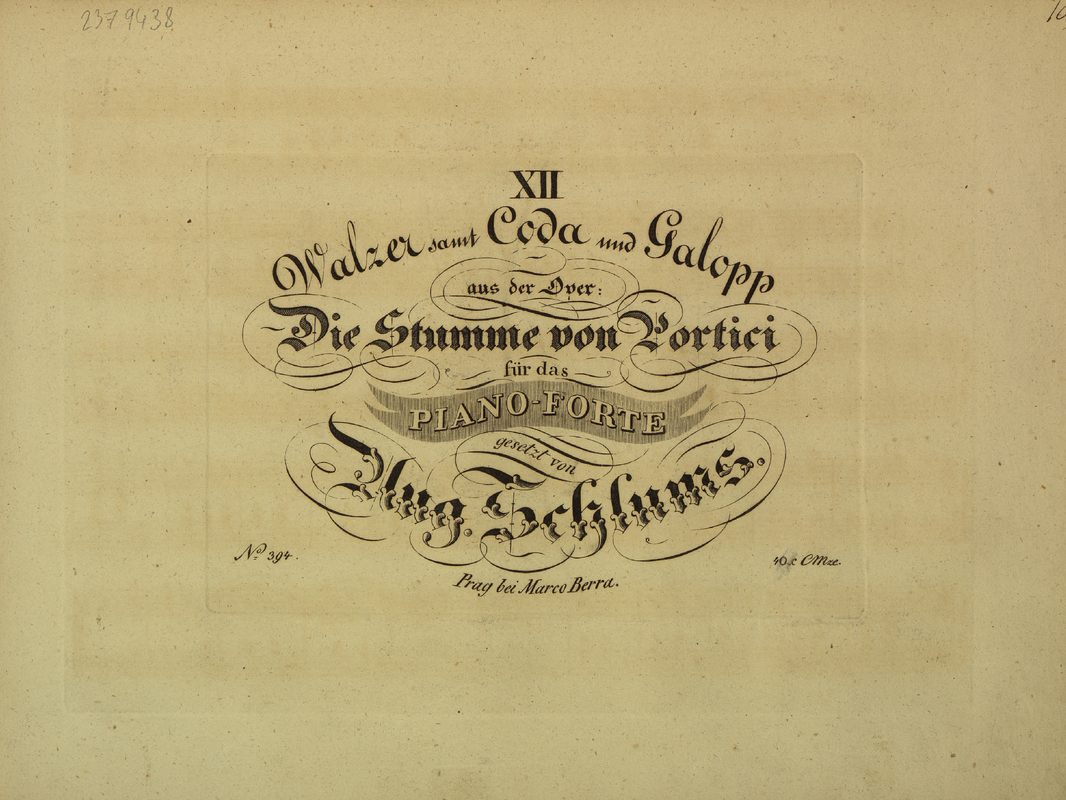 2379438
XII
Walzer samt Coda und Galopp
aus der Oper:
Die Stumme von Portici
für das
PIANO-FORTE
gesetzt von
Aug. Schlums.
No. 394.
40 x CMze.
Prag bei Marco Berra.